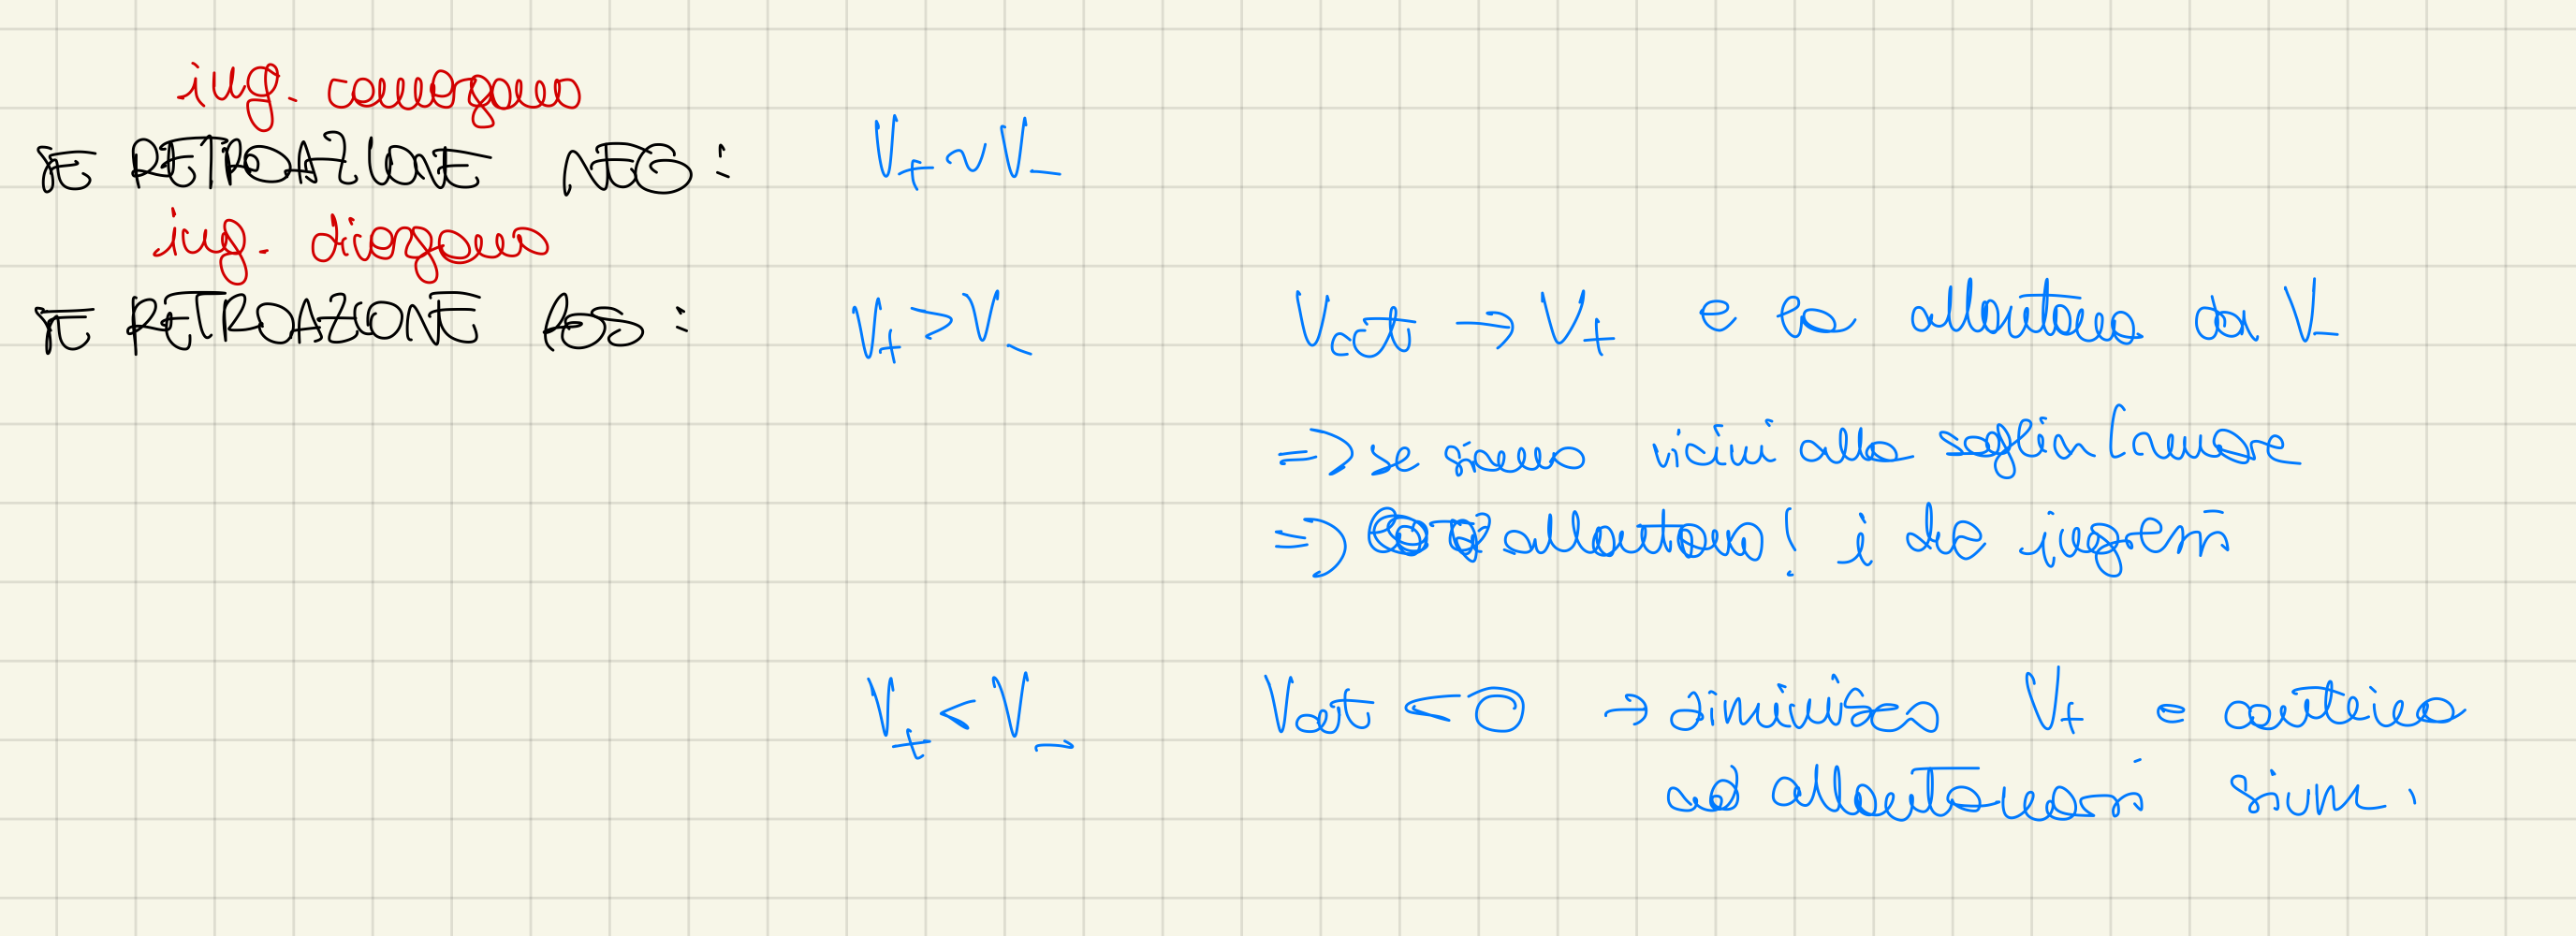 ing. convergono
SE RETROAZIONE NEG: V+ ~ V-
ing. divergono
SE RETROAZIONE POS: V+ > V- Vout → V+ e la allontana da V-
⇒ se siamo vicini alla soglia (rumore
⇒ allontano! i due ingressi
V+ < V- Vout < 0 → diminuisco V+ e continua
ad allontanarsi